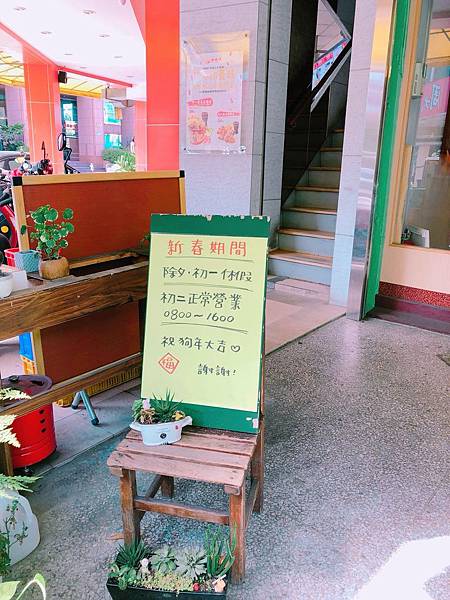 新春期間
除夕·初一休假
初二正常營業
0800～1600
祝狗年大吉♡
福
謝謝!